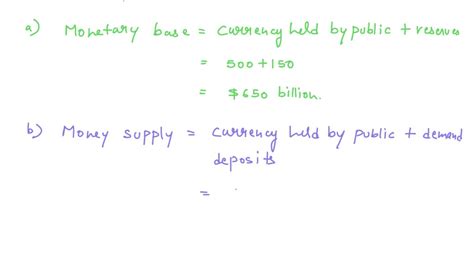 a) Monetary base = Currency held by public + reserves
= 500 + 150
= $650 billion.
b) Money supply = Currency held by public + demand
deposits
=